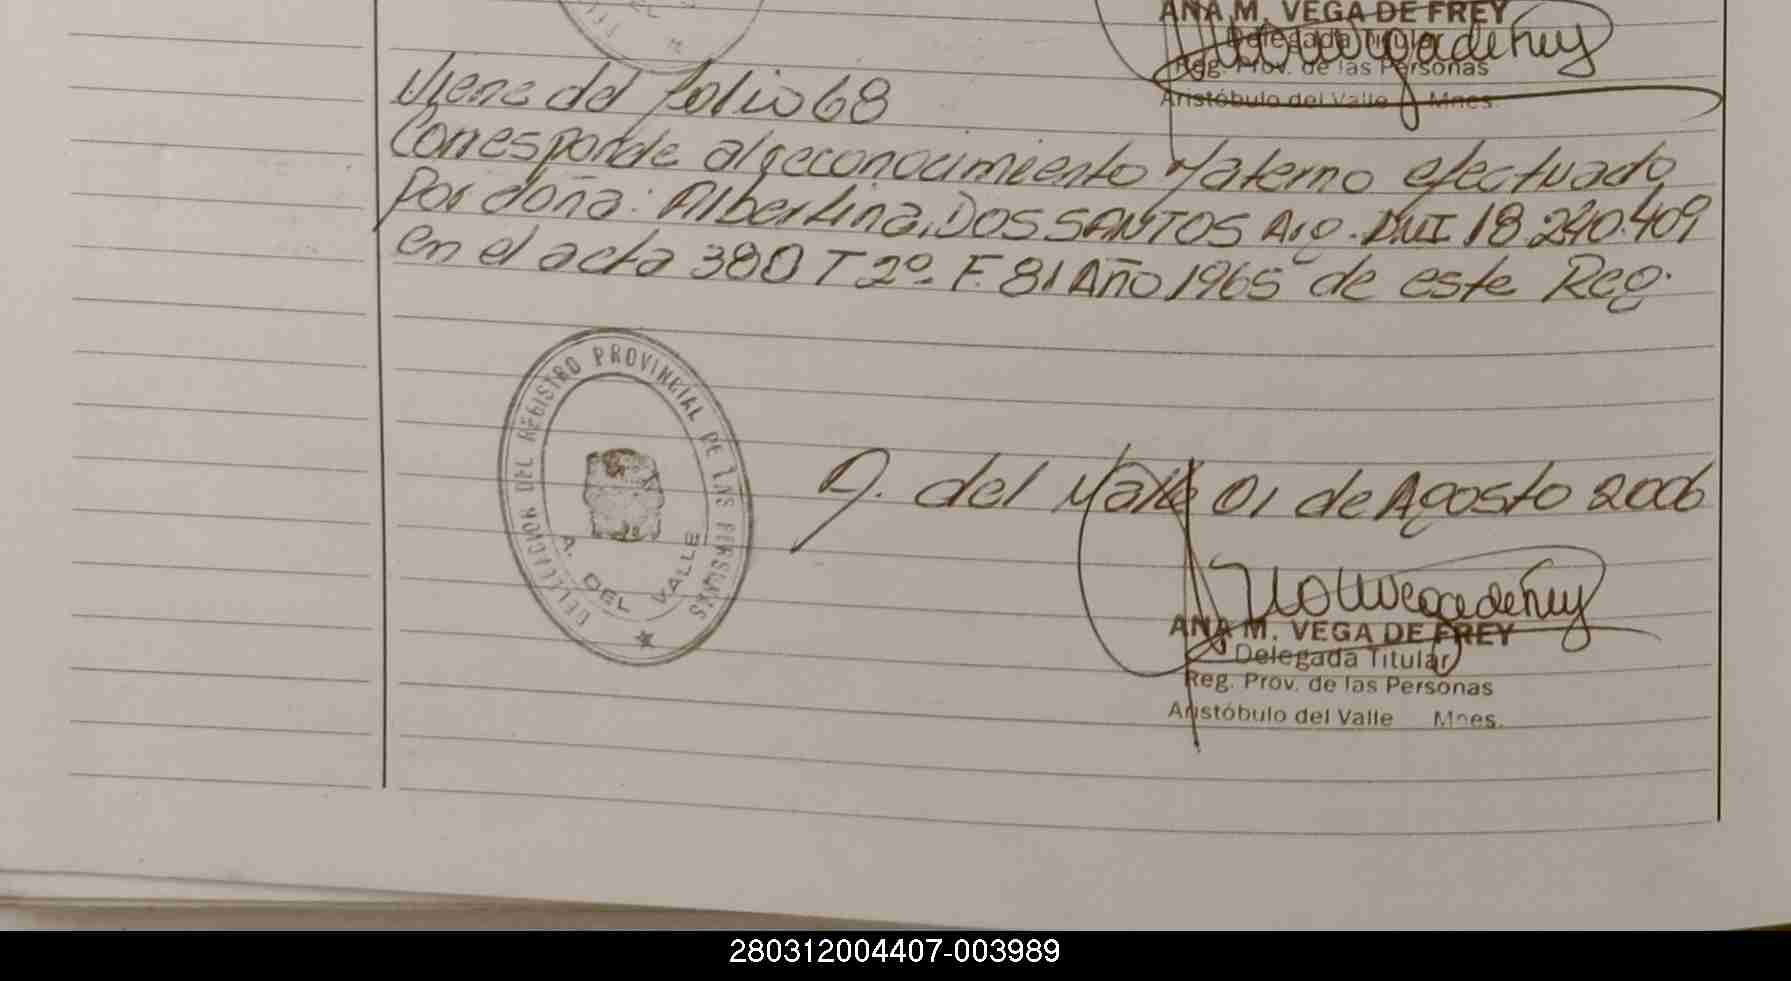 ANA M. VEGA DE FREY
Delegada Titular
Reg. Prov. de las Personas
Aristóbulo del Valle Mnes.
Viene del folio 68
Corresponde al reconocimiento Materno efectuado
Por doña: Albertina, DOS SANTOS Arg. DNI 18.240.409
en el acta 380 T 2º F. 81 Año 1965 de este Reg.
DELEGACION DEL REGISTRO PROVINCIAL DE LAS PERSONAS
A. DEL VALLE
A. del Valle 01 de Agosto 2006
ANA M. VEGA DE FREY
Delegada Titular
Reg. Prov. de las Personas
Aristóbulo del Valle Mnes.
280312004407-003989